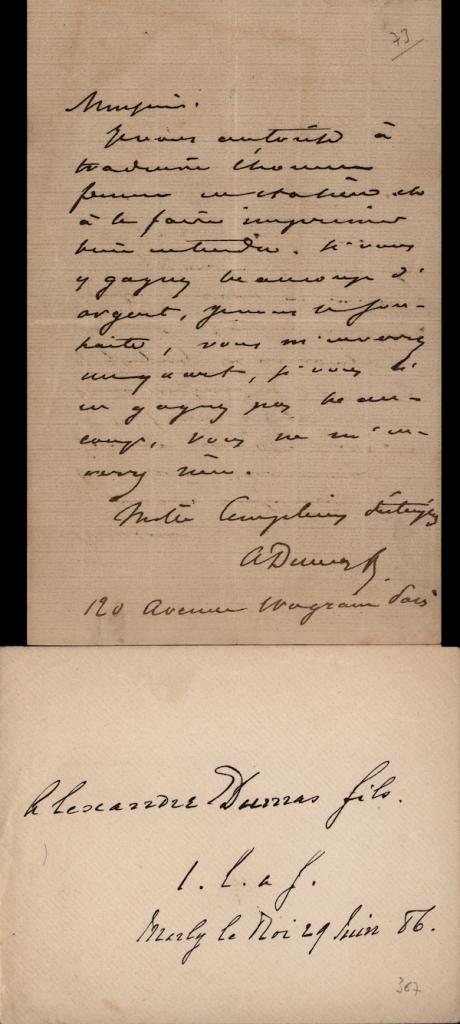 73
Monsieur.
Je vous autorise à
traduire l'homme
femme en italien et
à le faire imprimer
bien entendu. Si vous
y gagnez beaucoup d'
argent, je vous le sou-
haite, vous m'enverrez
un quart, si vous n'
en gagnez pas beau-
coup, vous ne m'en-
verrez rien.
Mille Compliments distingués
ADumas f.
120 Avenue Wagram Paris
Alexandre Dumas fils.
1. l. a f.
Marly le Roi 29 Juin 86.
367